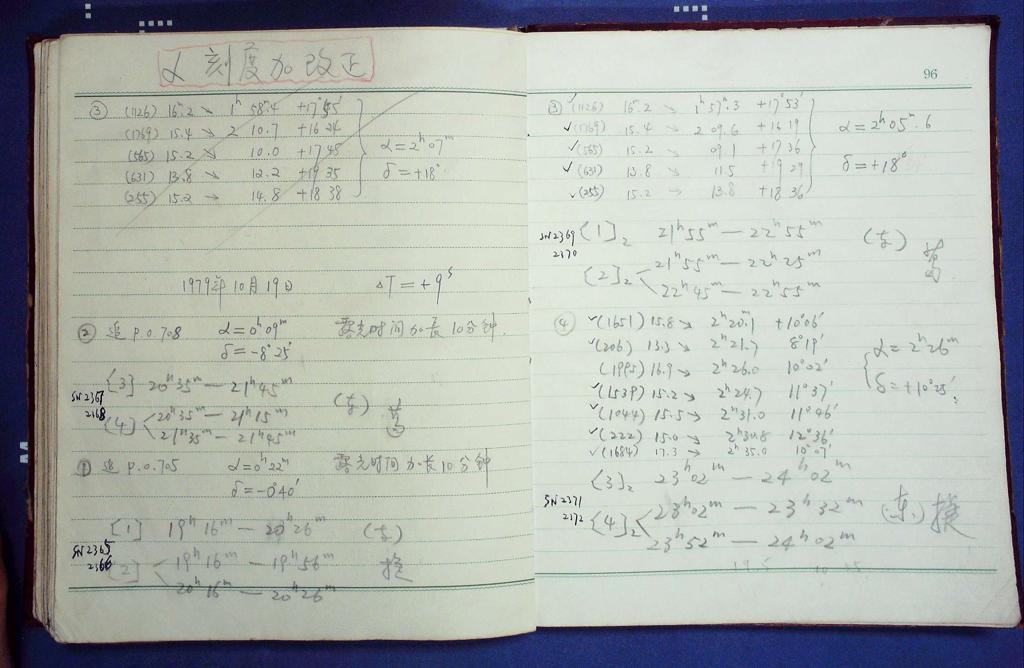 α 刻度加改正
③ (1126) 16ᵐ.2 ↘ 1ʰ 58ᵐ.4 +17°45′
(1769) 15.4 → 2 10.7 +16 24
(565) 15.2 ↘ 10.0 +17 45
(631) 13.8 ↘ 12.2 +19 35
(255) 15.2 → 14.8 +18 38
α=2ʰ07ᵐ
δ=+18°
1979年10月19日 ΔT=+9ˢ
② 追 P.O.708 α=0ʰ09ᵐ 露光时间加长10分钟.
δ=-8°25′
SN2367
2368
{3] 20ʰ35ᵐ—21ʰ45ᵐ
{4] 20ʰ35ᵐ—21ʰ15ᵐ
21ʰ35ᵐ—21ʰ45ᵐ
① 追 P.O.705 α=0ʰ22ᵐ 露光时间加长10分钟
δ=-0°40′
{1] 19ʰ16ᵐ—20ʰ26ᵐ
SN2365
2366
{2] 19ʰ16ᵐ—19ʰ56ᵐ
20ʰ16ᵐ—20ʰ26ᵐ
96
③ ✓(1126) 16ᵐ.2 ↘ 1ʰ57ᵐ.3 +17°53′
✓(1769) 15.4 → 2 09.6 +16 19
✓(565) 15.2 ↘ 09 1 +17 36
✓(631) 13.8 ↘ 11.5 +19 29
✓(255) 15.2 → 13.8 +18 36
α=2ʰ05ᵐ.6
δ=+18°
SN2369
2370
{1]₂ 21ʰ55ᵐ—22ʰ55ᵐ
{2]₂ 21ʰ55ᵐ—22ʰ25ᵐ
22ʰ45ᵐ—22ʰ55ᵐ
④ ✓(1651) 15.8 ↘ 2ʰ20ᵐ.1 +10°06′
✓(206) 13.3 ↘ 2ʰ21.7 8°19′
(1995) 16.9 → 2ʰ26.0 10°02′
✓(1539) 15.2 → 2ʰ24.7 11°37′
✓(1044) 15.5 ↘ 2ʰ31.0 11°46′
✓(222) 15.0 → 2ʰ30.8 12°36′
✓(1684) 17.3 → 2ʰ35.0 10°07′
α=2ʰ26ᵐ
δ=+10°25′
{3]₂ 23ʰ02ᵐ—24ʰ02ᵐ
SN2371
2372
{4]₂ 23ʰ02ᵐ—23ʰ32ᵐ (东)
23ʰ52ᵐ—24ʰ02ᵐ